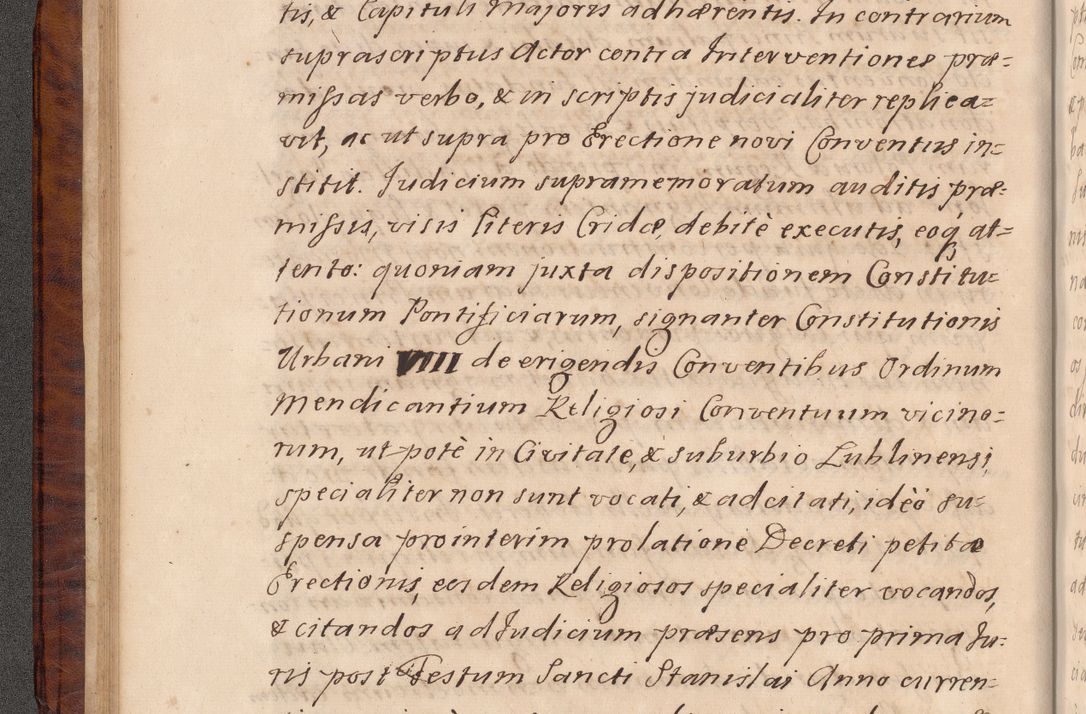 tis, & Capituli Majoris adhærentis. In contrarium
suprascriptus Actor contra Interventiones præ=
missas verbo, & in scriptis judicialiter replica=
vit, ac ut supra pro Erectione novi Conventus in=
stitit. Judicium supramemoratum auditis præ=
missis, visis literis Cridæ, debitè executis, eoq́ at=
tento: quoniam juxta dispositionem Constitu=
tionum Pontificiarum, signanter Constitutionis
Urbani VIII de erigendis Conventibus Ordinum
Mendicantium Religiosi Conventuum vicino=
rum, ut potè in Civitate, & suburbio Lublinensi,
specialiter non sunt vocati, & adcitati, idèò su=
spensa prointerim prolatione Decreti petitæ
Erectionis, eosdem Religiosos specialiter vocandos,
& citandos ad Judicium præsens pro prima Ju=
ris post Festum Sancti Stanislai Anno curren=